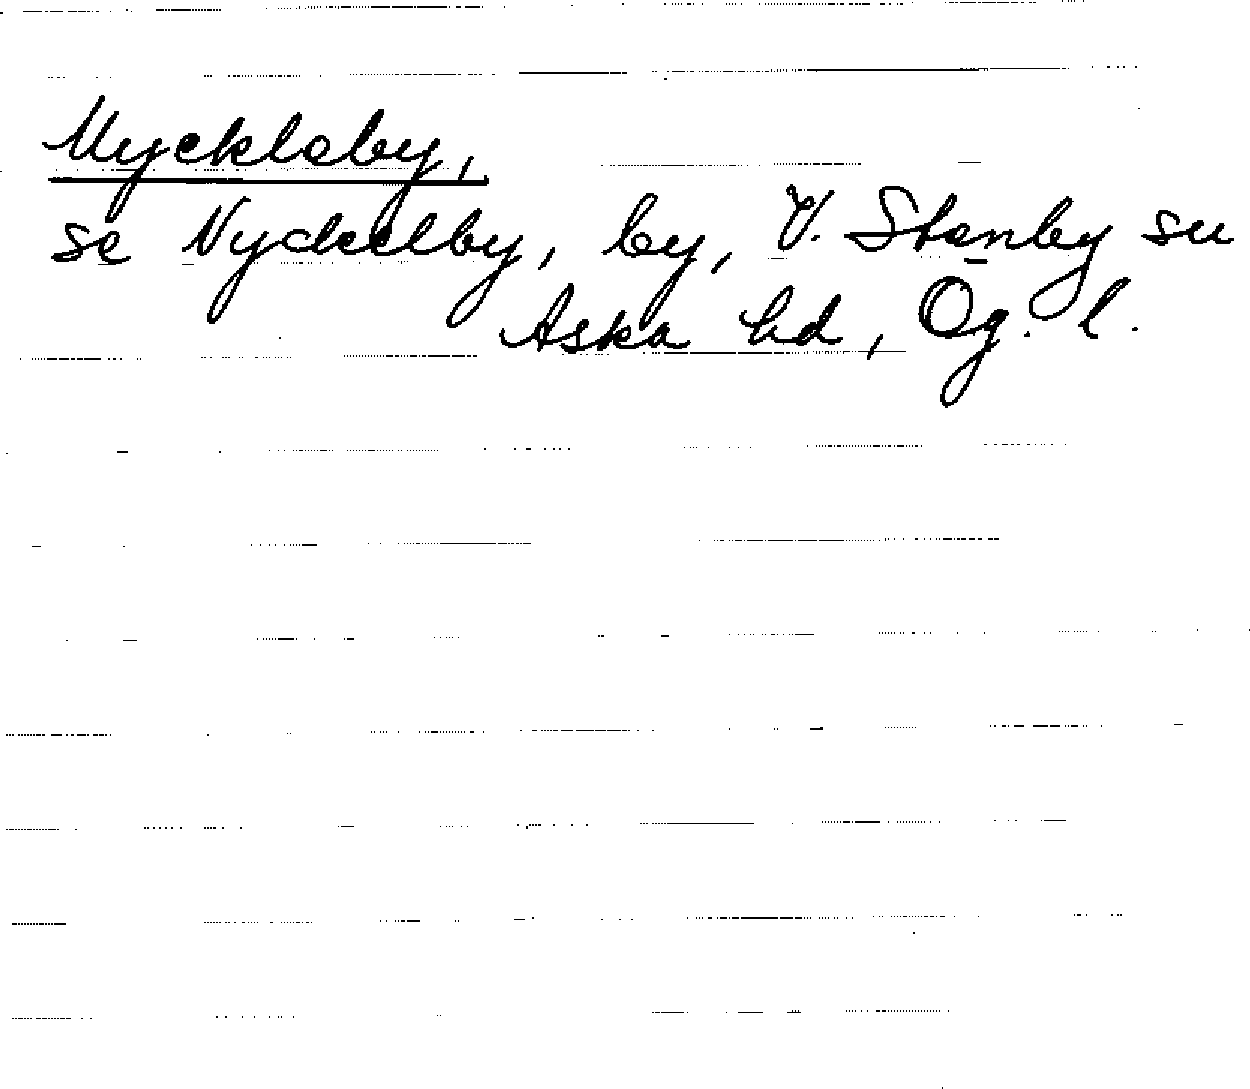 Myckleby,
se Nyckelby, by, V. Stenby sn
Aska hd, Ög. l.